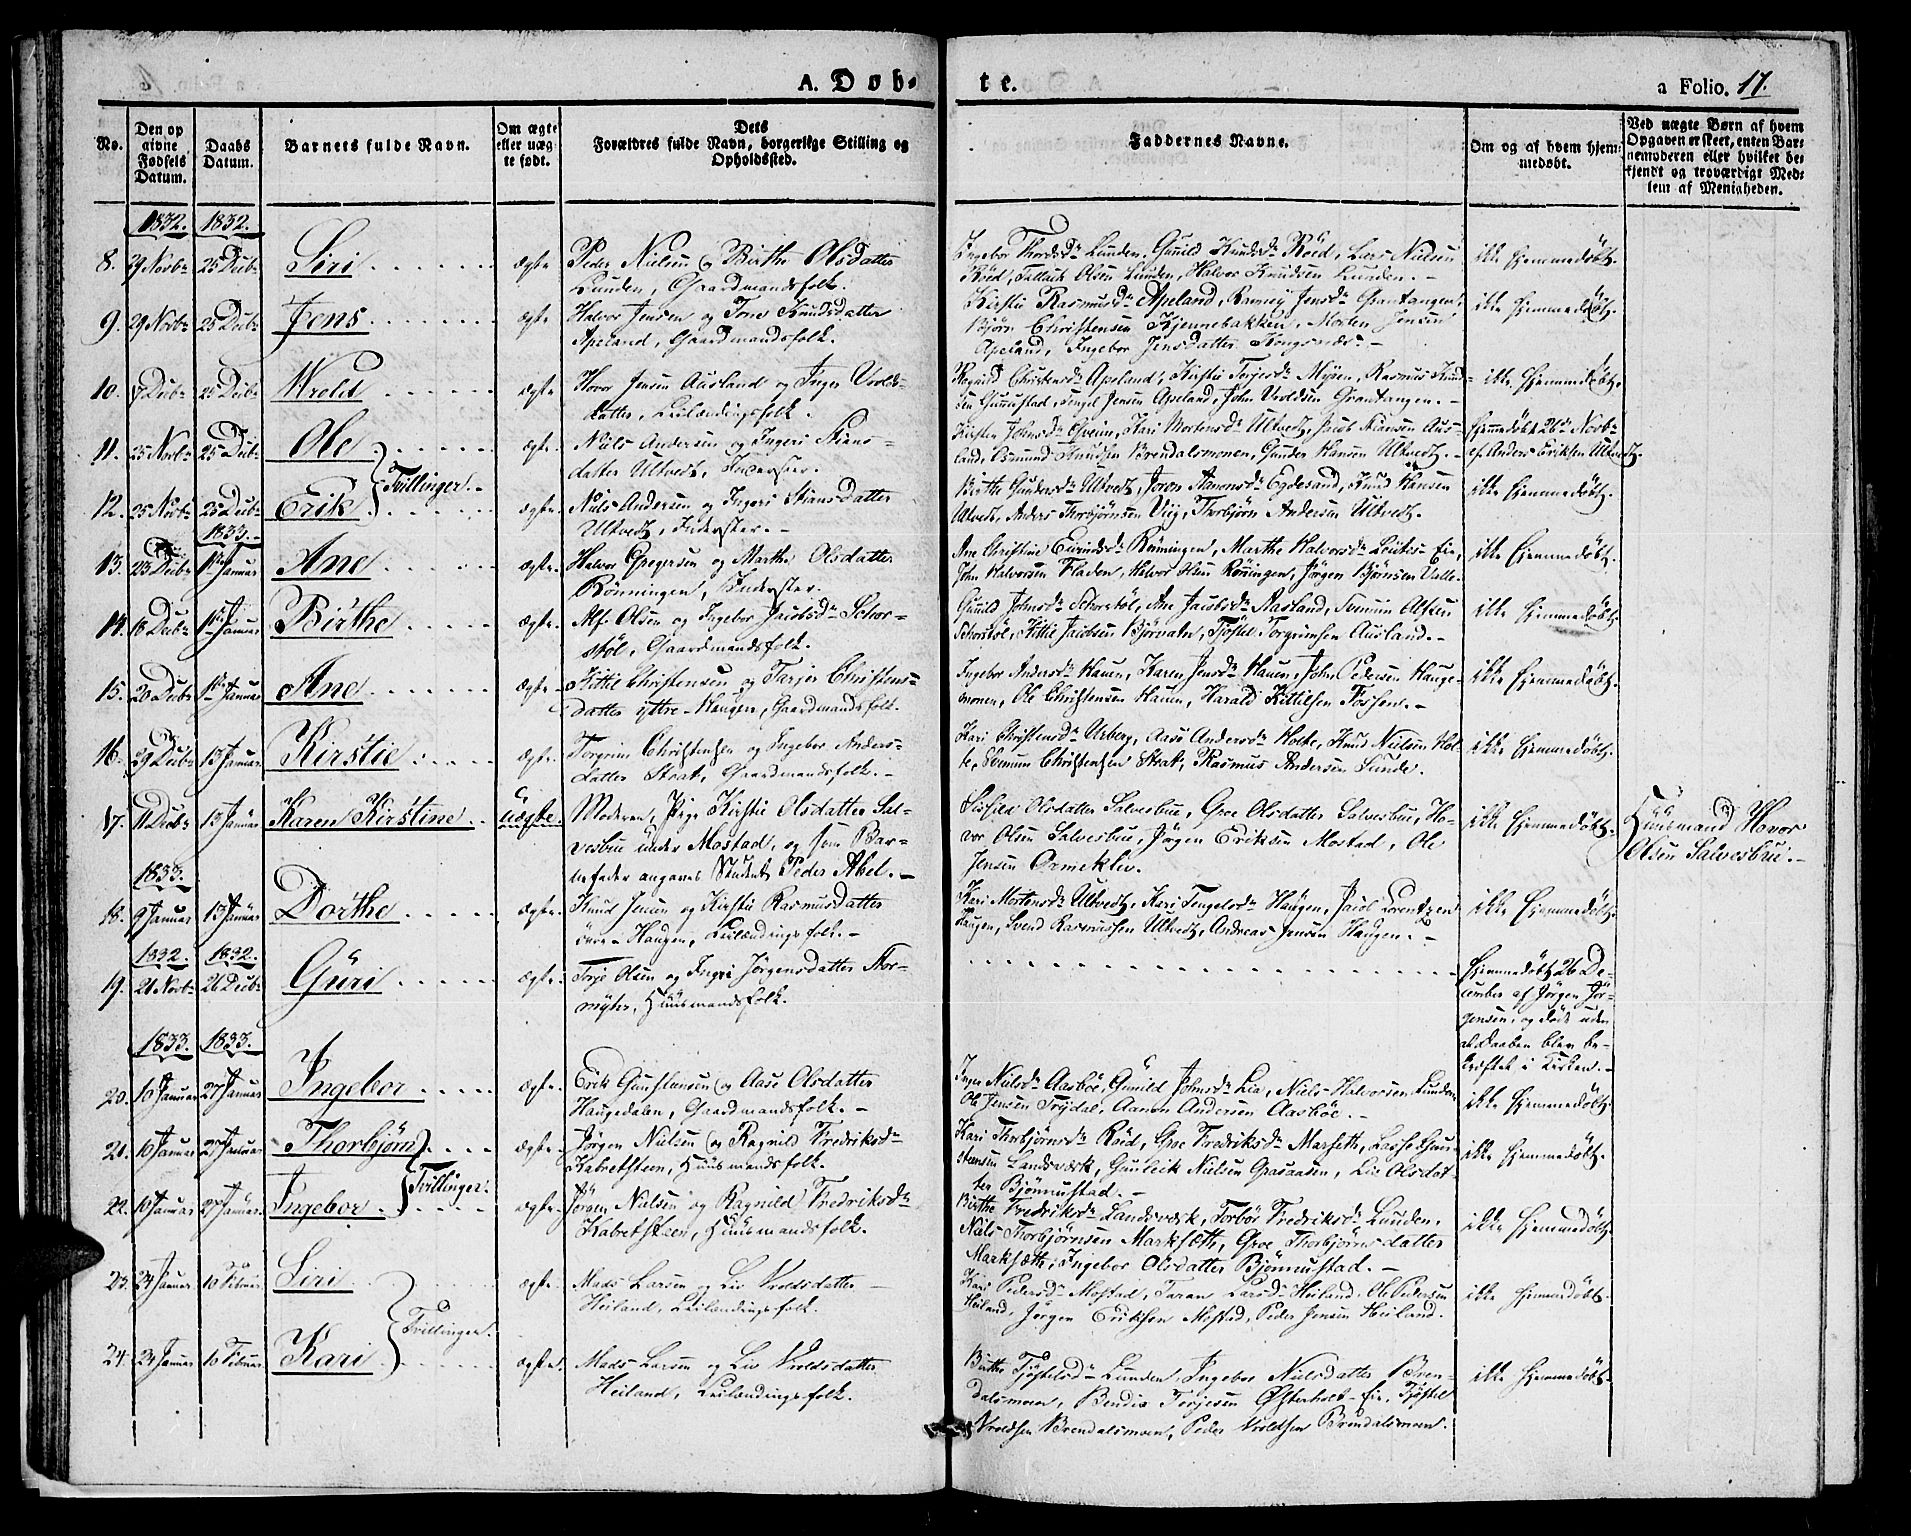 A. Døb-
te.
a Folio. 17.
No.
Den op
givne
Fødsels
Datum.
Daabs
Datum.
Barnets fulde Navn.
Om ægte
eller uæg-
te født.
Dets
Forældres fulde Navn, borgerlige Stilling og
Opholdssted.
Faddernes Navne.
Om og af hvem hjem-
medøbt.
Ved uægte Børn af hvem
Opgaven er skeet, enten Bar-
nemoderen eller hvilket be-
kjendt og troværdigt Med-
lem af Menigheden.
1832. 1832.
8. 29 Novbr 25 Decbr Siri ægte. Peder Nielsen og Birthe Olsdatter
Lunden, Gaardmandsfolk.
Ingebor Thordsdr Lunden, Gunild Knudsdr Röed, Lars Nielsen
Röed, Tallak Olsen Lunden, Halvor Knudsen Lunden.
ikke hjemmedøbt.
9. 29 Novbr 25 Decbr Jens ægte Halvor Jensen og Tone Knudsdatter
Apeland, Gaardmandsfolk.
Kirstie Rasmusdr Apeland, Ranney Jensdr Grantangen,
Bjørn Christensen Kjennebakken, Morten Jensen
Apeland, Ingebor Jensdatter Kongsnæs.
ikke hjemmedøbt.
10. 7 Decbr 25 Decbr Wrold ægte. Hovor Jensen Ausland og Inger Vrolds-
datter, Leilændingsfolk.
Ragnild Christensdr Apeland, Kirstie Terjesdr Myren, Rasmus Knud-
sen Gunnustad, Tengel Jensen Apeland, John Vroldsen Grantangen.
ikke hjemmedøbt.
11. 25 Novbr 25 Decbr Ole ægte. Niels Andersen og Ingeri Stians-
datter Ultvedt, Inderster.
Kirsten Johnsdr Hveim, Kari Mortensdr Ultvedt, Jacob Stiansen Aus-
land, Osmund Knudsen Brendalsmonen, Gunder Hansen Ultvedt.
hjemmedøbt 26de Novbr
af Anders Eriksen Ultvedt.
Tvillinger.
12. 25 Novbr 25 Decbr Erik ægte. Niels Andersen og Ingeri Stiansdatter
Ultvedt, Inderster.
Birthe Gundersdr Ultvedt, Joron Aanonsdr Egdesand, Knud Hansen
Ultvedt, Anders Thorbjørnsen Viig, Thorbjørn Andersen Ultvedt.
ikke hjemmedøbt.
1833.
13. 23 Decbr 1ste Januar Ane ægte. Halvor Gregersen og Marthe Olsdatter
Rönningen, Inderster.
Ane Christine Eivindsdr Rönningen, Marthe Halvorsdr Leites-Eie,
John Halvorsen Fladen, Halvor Olsen Röningen, Jörgen Bjørnsen Valle.
ikke hjemmedøbt.
14. 16 Decbr 1ste Januar Birthe ægte. Alf Olsen og Ingebor Jacobsdr Schor-
støl, Gaardmandsfolk.
Gunild Johnsdr Schorstøl, Ane Jacobsdr Aasland, Svenum Alfsen
Schorstøl, Kittil Jacobsen Bjørvatn, Tjøstel Torgrimsen Ausland.
ikke hjemmedøbt.
15. 20 Decbr 1ste Januar Ane ægte. Kittil Christensen og Tarjer Christens-
datter yttre-Haugen, Gaardmandsfolk.
Ingebor Andersdr Hauen, Karen Jensdr Hauen, John Pedersen Hauge-
monen, Ole Christensen Hauen, Harald Kittilsen Fossen.
ikke hjemmedøbt.
16. 29 Decbr 13 Januar Kirstie ægte. Torgrim Christensen og Ingebor Anders-
datter Stoat, Gaardmandsfolk.
Kari Christensdr Urberg, Aase Andersdr Holte, Knud Nielsen Hol-
te, Svenum Christensen Stoat, Rasmus Andersen Sunde.
ikke hjemmedøbt.
17. 11 Decbr 13 Januar Karen Kirstine uægte. Moderen, Pige Kirstie Olsdatter Sal-
vesbue under Mostad, og som Bar-
nefader angaves Student Peder Abel.
Sissild Olsdatter Salvesbue, Groe Olsdatter Salvesbue, Ho-
vor Olsen Salvesbue, Jörgen Eriksen Mostad, Ole
Jensen Ormeklev.
ikke hjemmedøbt.
Huusmand Hovor
Olsen Salvesbue.
1833.
18. 9 Januar 13 Januar Dorthe ægte. Knud Jensen og Kirstie Rasmusdatter
övre-Haugen, Leilændingsfolk.
Kari Mortensdr Ultvedt, Kari Tengelsdr Haugen, Jacob Lorentzen
Haugen, Svend Rasmussen Ultvedt, Andreas Jensen Haugen.
ikke hjemmedøbt.
1832. 1832.
19. 21 Novbr 26 Decbr Guri ægte. Terje Olsen og Ingri Jörgensdatter Stor-
myhr, Huusmandsfolk.
hjemmedøbt 26 De-
cember af Jörgen Jör-
gensen, og døde uden
at Daaben blev be-
kræftet i Kirken.
1833. 1833.
20. 10 Januar 27 Januar Ingebor ægte. Erik Gunstensen og Aase Olsdatter
Haugedalen, Gaardmandsfolk.
Inger Nielsdr Aasböe, Gunild Johnsdr Lia, Niels Halvorsen Lunden
Ole Jensen Frydal, Aanon Andersen Aasböe.
ikke hjemmedøbt.
21. 10 Januar 27 Januar Thorbjörn ægte. Jörgen Nielsen og Ragnild Fredriksdr
Kabretsteen, Huusmandsfolk.
Kari Thorbjørnsdr Röed, Groe Fredriksdr Marseth, Lasse Gun-
stensen Landsværk, Gunleik Nielsen Graaasen, Lie Olsdat-
ter Bjönnustad.
ikke hjemmedøbt.
Tvillinger.
22. 10 Januar 27 Januar Ingebor ægte. Jörgen Nielsen og Ragnild Fredriksdr
Kabretsteen, Huusmandsfolk.
Birthe Fredriksdr Landsværk, Torbor Fredriksdr Lunden,
Niels Thorbjørnsen Marksæth, Groe Thorbjørnsdatter
Marksæth, Ingebor Olsdatter Bjönnustad.
ikke hjemmedøbt.
23. 24 Januar 10 Februar Siri ægte. Mads Larsen og Liv Vroldsdatter
Heiland, Leilendingsfolk.
Kari Pedersdr Mostad, Taran Larsdr Heiland, Ole Pedersen
Heiland, Jörgen Eriksen Mostad, Peder Jensen Heiland.
ikke hjemmedøbt.
Tvillinger.
24. 24 Januar 10 Februar Kari ægte. Mads Larsen og Liv Vroldsdatter
Heiland, Leilendingsfolk.
Birthe Tjøstelsdr Lunden, Ingebor Nielsdatter Bren-
dalsmoen, Bendix Terjesen Østerholt-Eie, Tjøstel
Vroldsen Brendalsmoen, Peder Vroldsen Brendalsmoen.
ikke hjemmedøbt.